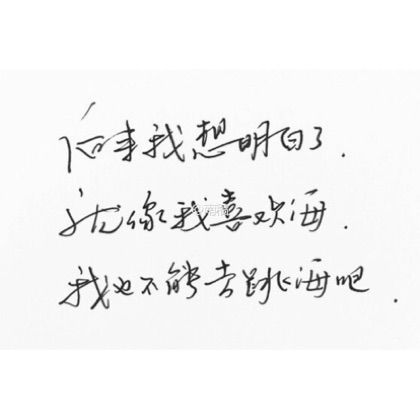 后来我想明白了.
就像我喜欢海.
我也不能去跳海吧.